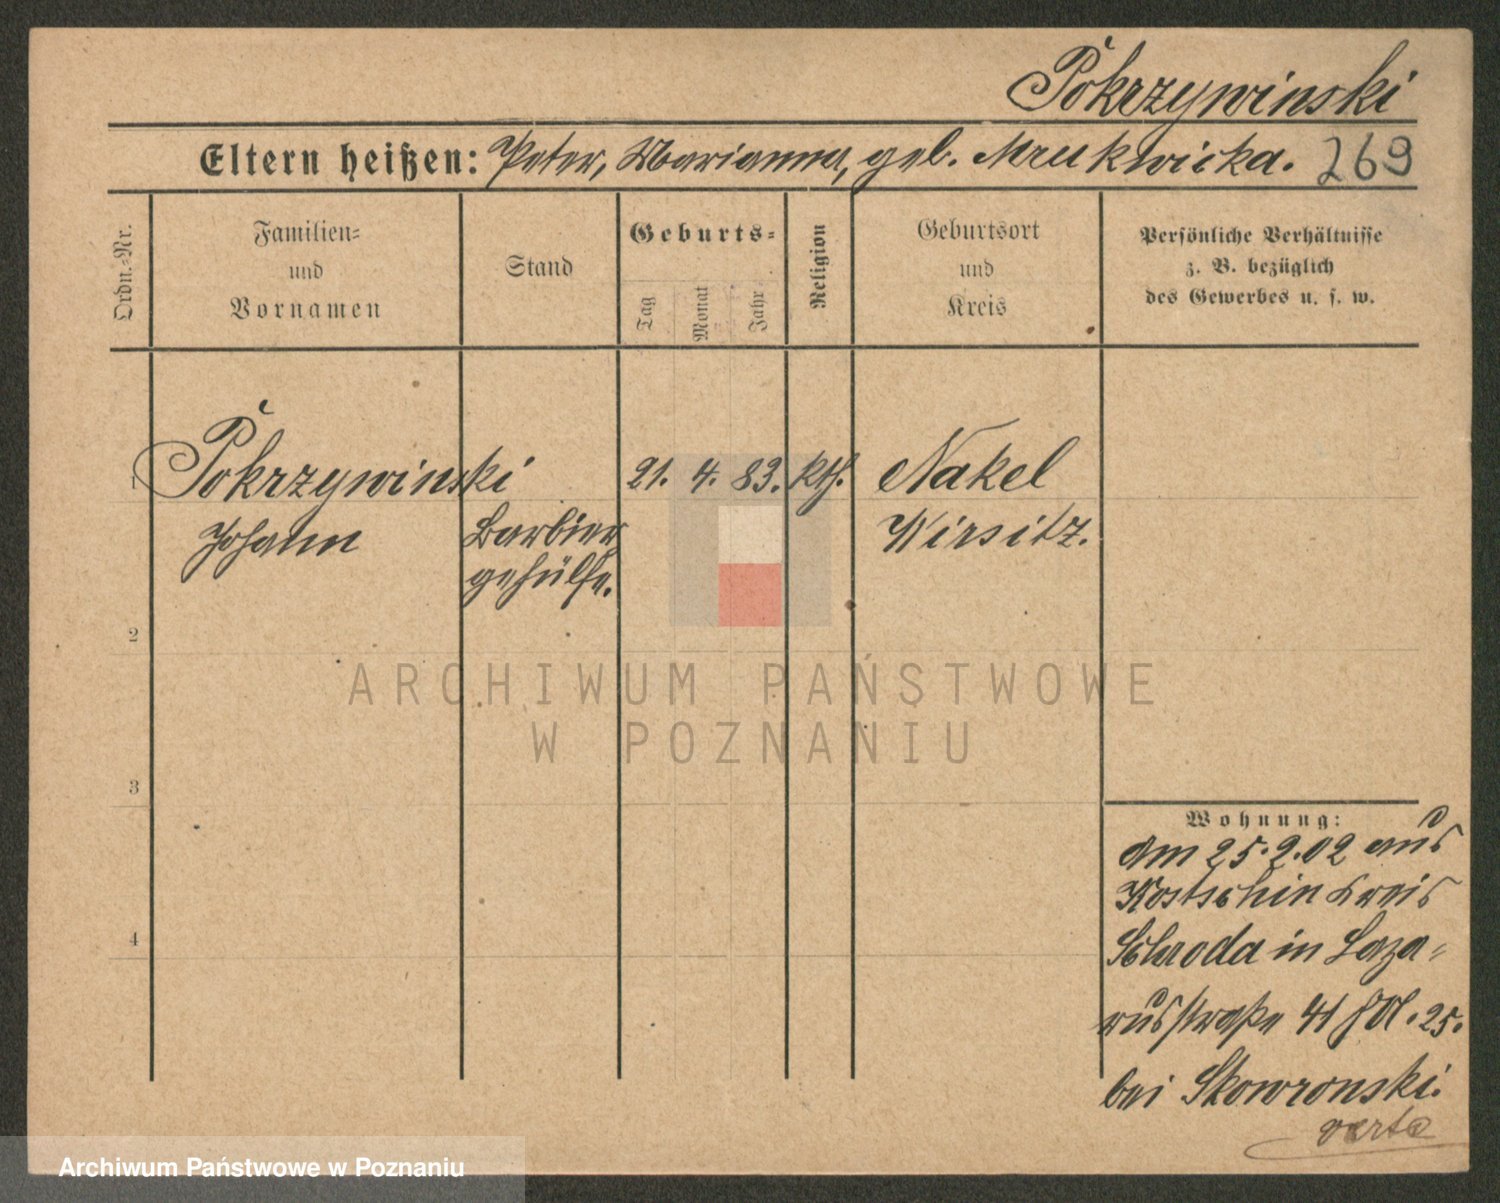 Pokrzywinski
Eltern heißen: Peter, Marianna, geb. Mrukwicka. 269
Ordn.-Nr.
Familien-
und
Vornamen
Stand
Geburts-
Tag
Monat
Jahr
Religion
Geburtsort
und
Kreis
Persönliche Verhältnisse
z. B. bezüglich
des Gewerbes u. s. w.
1 Pokrzywinski 21. 4. 83. kth. Nakel
Johann Barbier Wirsitz.
gehülfe.
2
3
4
Wohnung:
Am 25.2.02 aus
Kostschin Kreis
Schroda in Laza-
russtraße 41 25.
bei Skowronski.
verte
ARCHIWUM PAŃSTWOWE
W POZNANIU
Archiwum Państwowe w Poznaniu